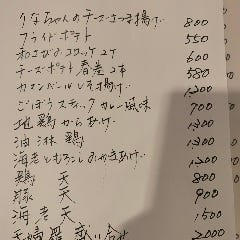 うなちゃんのチーズさつま揚げ 800
フライドポテト 550
和さびのコロッケ 2ケ 600
チーズポテト春巻 2本 580
カマンベールしそ揚げ 1300
ごぼうスティックカレー風味 700
地鶏からあげ 1300
油淋鶏 1300
海老ともろこしのかきあげ 1200
鶏天 800
豚天 900
海老天 1500
盛り合せ 2000